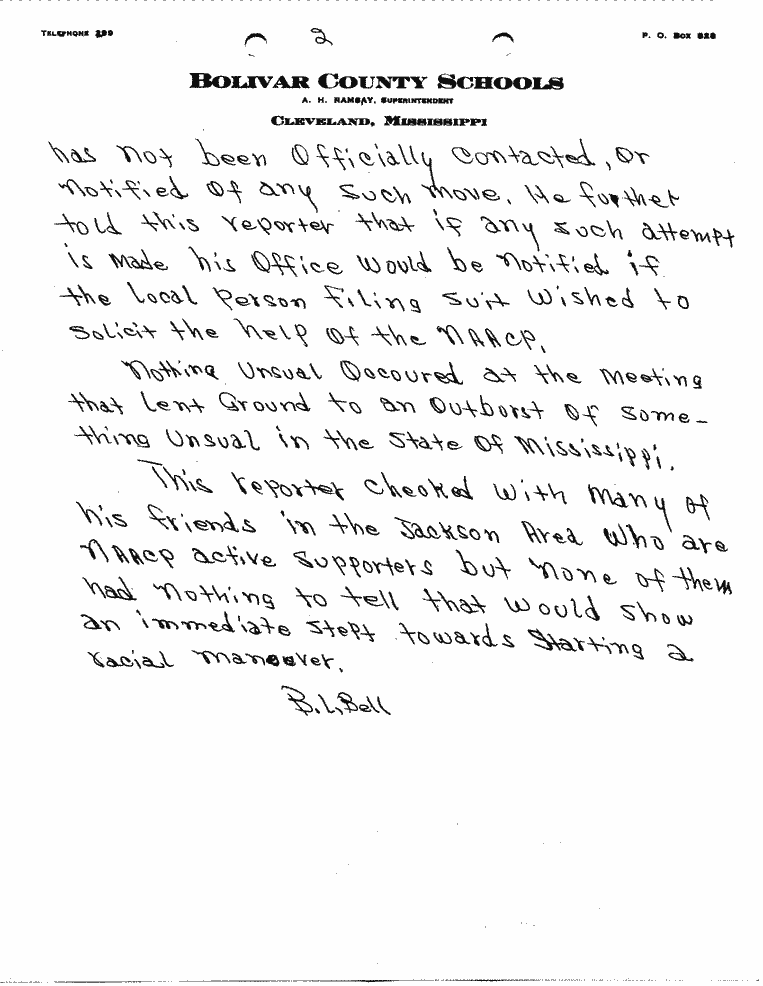 TELEPHONE 299
2
P. O. BOX 828
BOLIVAR COUNTY SCHOOLS
A. H. RAMSAY, SUPERINTENDENT
CLEVELAND, MISSISSIPPI
has not been Officially contacted, or
notified of any such move. He further
told this reporter that if any such attempt
is made his Office would be notified if
the local Person filing suit wished to
solicit the help of the NAACP.
Nothing Unsual Occoured at the meeting
that lent Ground to an Outborst of some-
thing Unsual in the State of Mississippi.
This reporter checked with many of
his friends in the Jackson Area who are
NAACP active supporters but none of them
had nothing to tell that would show
an immediate stept towards starting a
racial maneover.
B.L. Bell